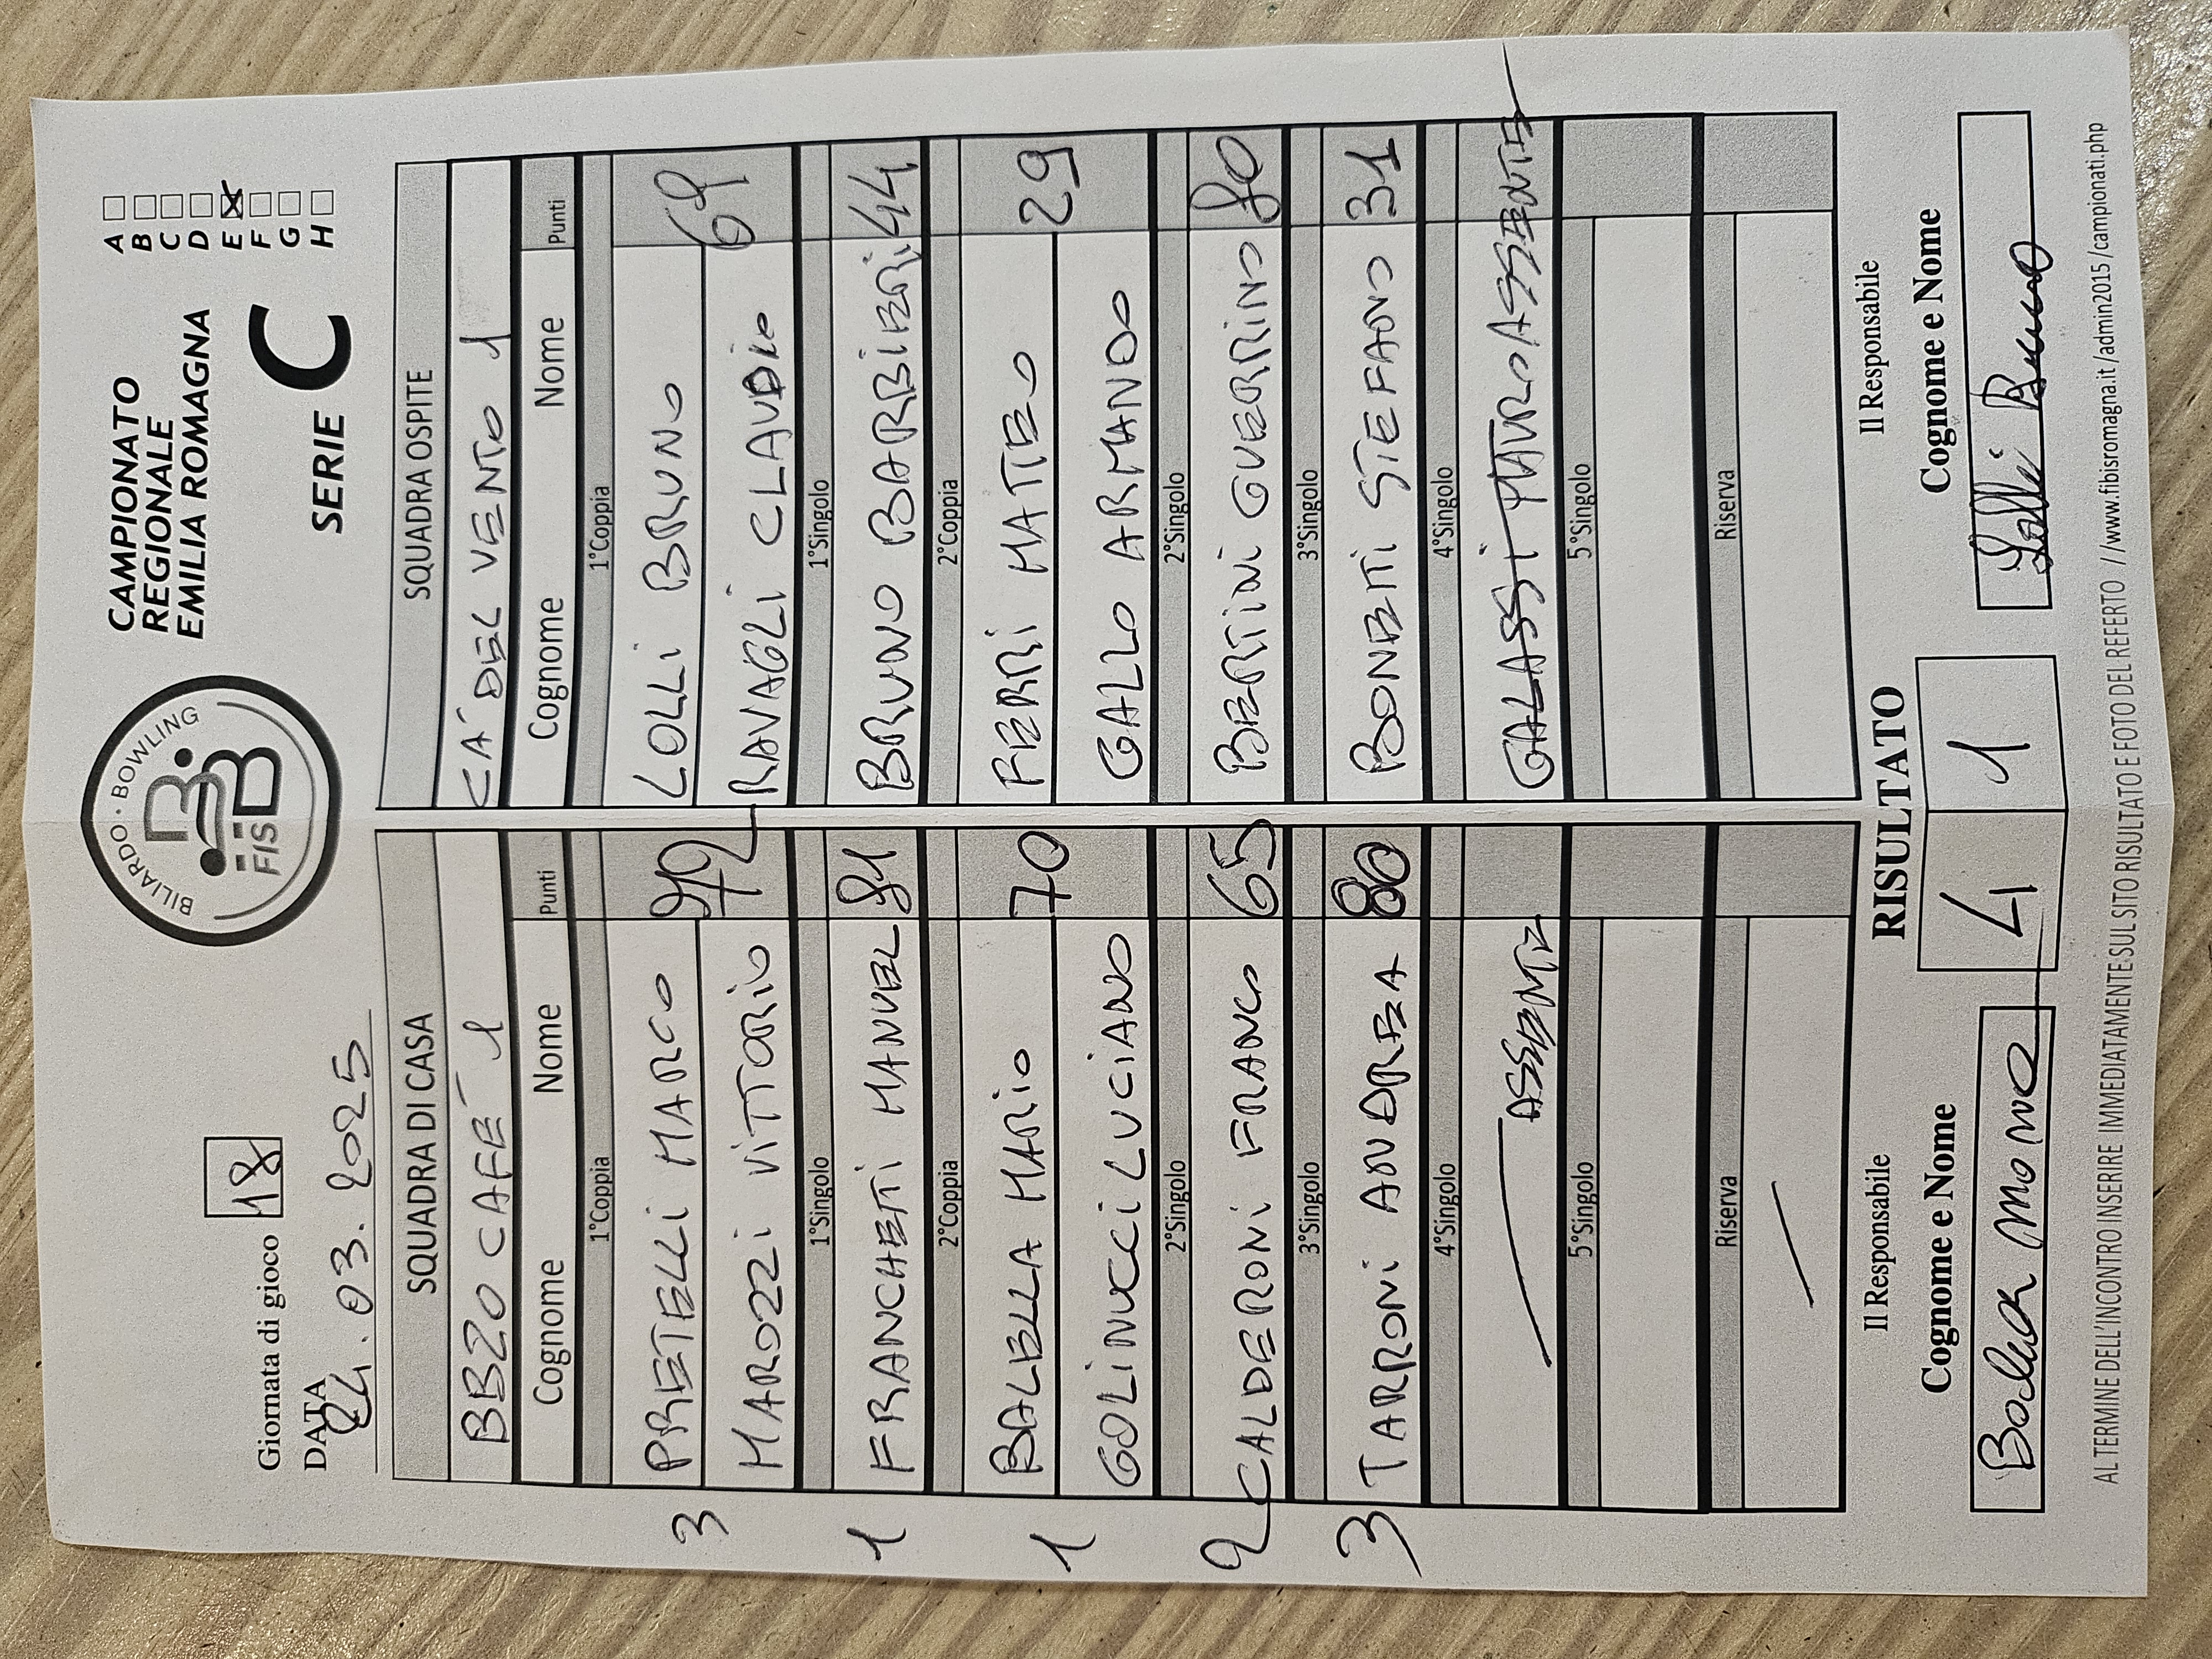 Giornata di gioco 18
DATA 24.03.2025
BILIARDO · BOWLING
FISBB
CAMPIONATO
REGIONALE
EMILIA ROMAGNA
SERIE C
A
B
C
D
E X
F
G
H
SQUADRA DI CASA
BBZO CAFE' 1
Cognome Nome Punti
1°Coppia
3 PRETELLI MARCO 92
MAROZZI VITTORIO
1°Singolo
1 FRANCHETTI MANUEL 81
2°Coppia
1 BALELLA MARIO 70
GOLINUCCI LUCIANO
2°Singolo
2 CALDERONI FRANCO 65
3°Singolo
3 TARRONI ANDREA 80
4°Singolo
ASSENTE
5°Singolo
Riserva
SQUADRA OSPITE
CA' DEL VENTO 1
Cognome Nome Punti
1°Coppia
LOLLI BRUNO 69
RAVAGLI CLAUDIO
1°Singolo
BRUNO BARBIERI 44
2°Coppia
FERRI MATTEO 29
GALLO ARMANDO
2°Singolo
BERTINI GUERRINO 80
3°Singolo
BONETTI STEFANO 31
4°Singolo
GALASSI MAURO ASSENTE
5°Singolo
Riserva
Il Responsabile
Cognome e Nome
RISULTATO
4 1
Il Responsabile
Cognome e Nome
Lolli Bruno
AL TERMINE DELL'INCONTRO INSERIRE IMMEDIATAMENTE SUL SITO RISULTATO E FOTO DEL REFERTO //www.fibisromagna.it/admin2015/campionati.php